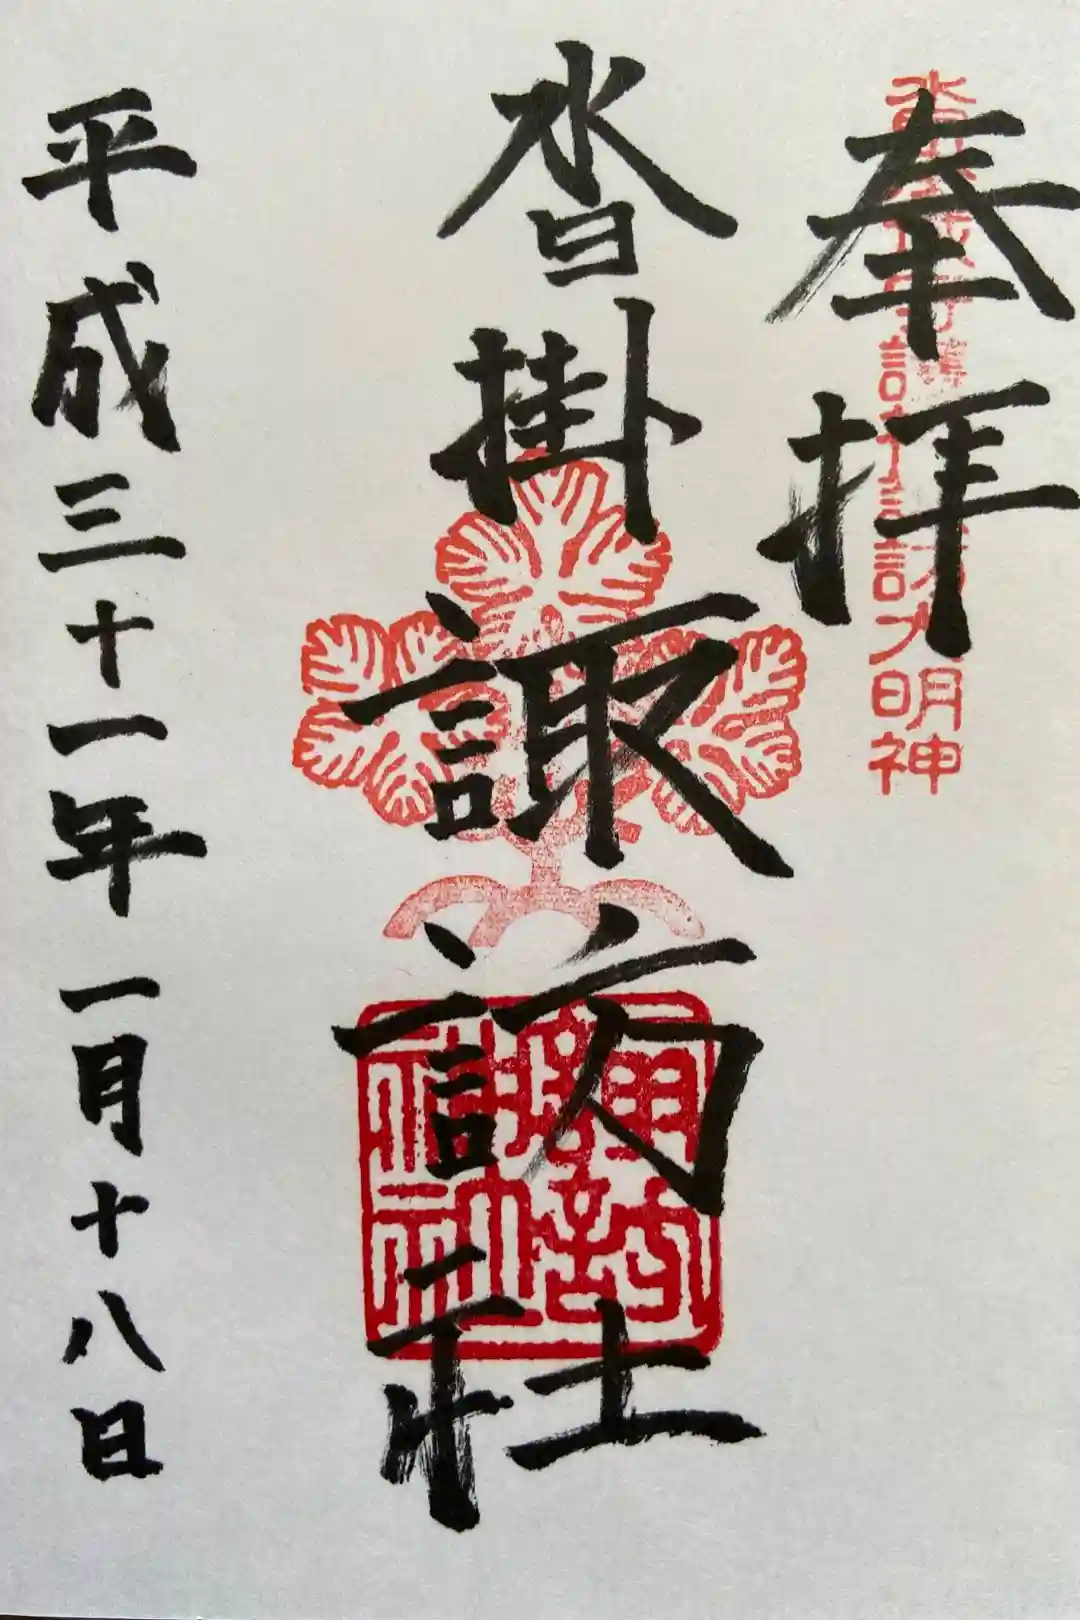 奉拝
大明神
沓掛諏訪社
諏訪
平成三十一年一月十八日